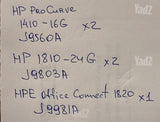 HP ProCurve
1410-16G x2
J9560A
HP 1810-24G x2
J9803A
HPE Office Connect 1820 x1
J9981A
Yad2